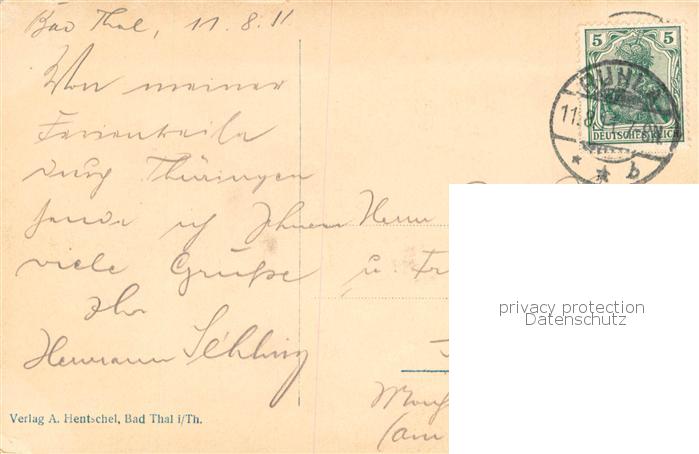 Bad Thal, 11.8.11
Von meiner
Ferienreise
durch Thüringen
sende ich Ihnen
viele Grüße
Ihr
Hermann
Herrn
u. Fr
(am
5 5
DEUTSCHES REICH
RUHLA
11.8.11
* * b
privacy protection
Datenschutz
Verlag A. Hentschel, Bad Thal i/Th.